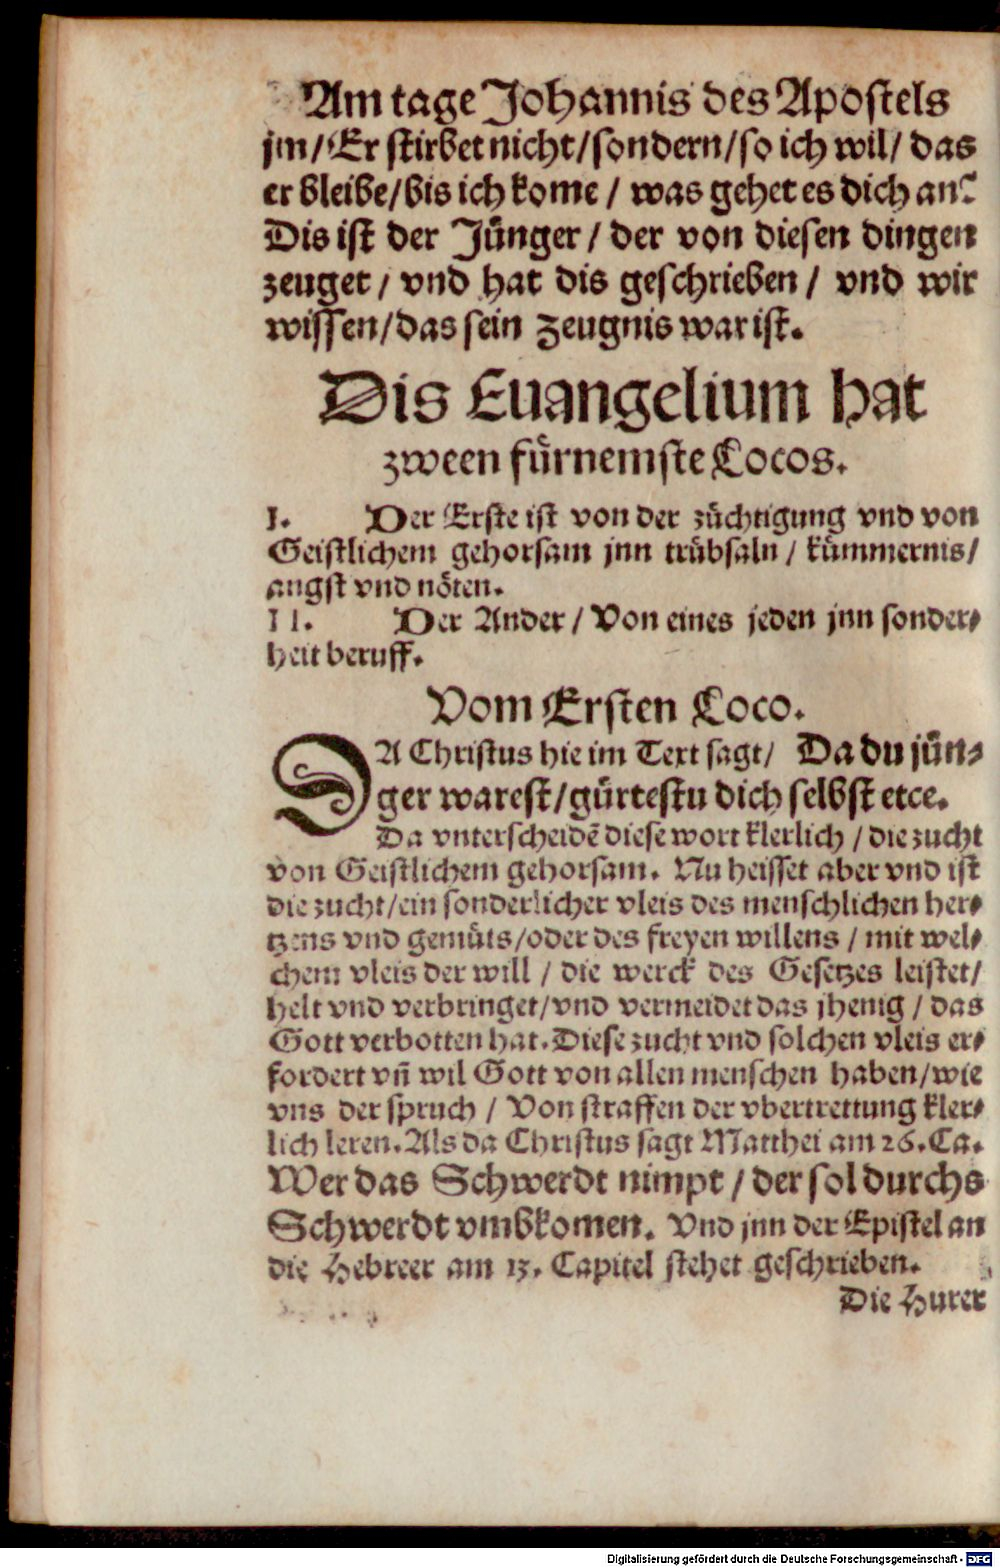 Am tage Johannis des Apostels
jm/Er stirbet nicht/sondern/so ich wil/ das
er bleibe/bis ich kome / was gehet es dich an?
Dis ist der Jünger / der von diesen dingen
zeuget / vnd hat dis geschrieben / vnd wir
wissen/das sein Zeugnis war ist.
Dis Euangelium hat
zween fürnemste Locos.
I. Der Erste ist von der züchtigung vnd von
Geistlichem gehorsam jnn trübsaln / kümmernis/
angst vnd nöten.
II. Der Ander / Von eines jeden jnn sonder⸗
heit beruff.
Vom Ersten Loco.
DA Christus hie im Text sagt/ Da du jün⸗
ger warest/gürtestu dich selbst etce.
Da vnterscheidē diese wort klerlich / die zucht
von Geistlichem gehorsam. Nu heisset aber vnd ist
die zucht/ein sonderlicher vleis des menschlichen her⸗
tzens vnd gemüts/oder des freyen willens / mit wel⸗
chem vleis der will / die werck des Gesetzes leistet/
helt vnd verbringet/vnd vermeidet das jhenig / das
Gott verbotten hat. Diese zucht vnd solchen vleis er⸗
fordert vñ wil Gott von allen menschen haben/wie
vns der spruch / Von straffen der vbertrettung kler⸗
lich leren. Als da Christus sagt Matthei am 26. Ca.
Wer das Schwerdt nimpt / der sol durchs
Schwerdt vmbkomen. Vnd jnn der Epistel an
die Hebreer am 13. Capitel stehet geschrieben.
Die Hurer
Digitalisierung gefördert durch die Deutsche Forschungsgemeinschaft - DFG